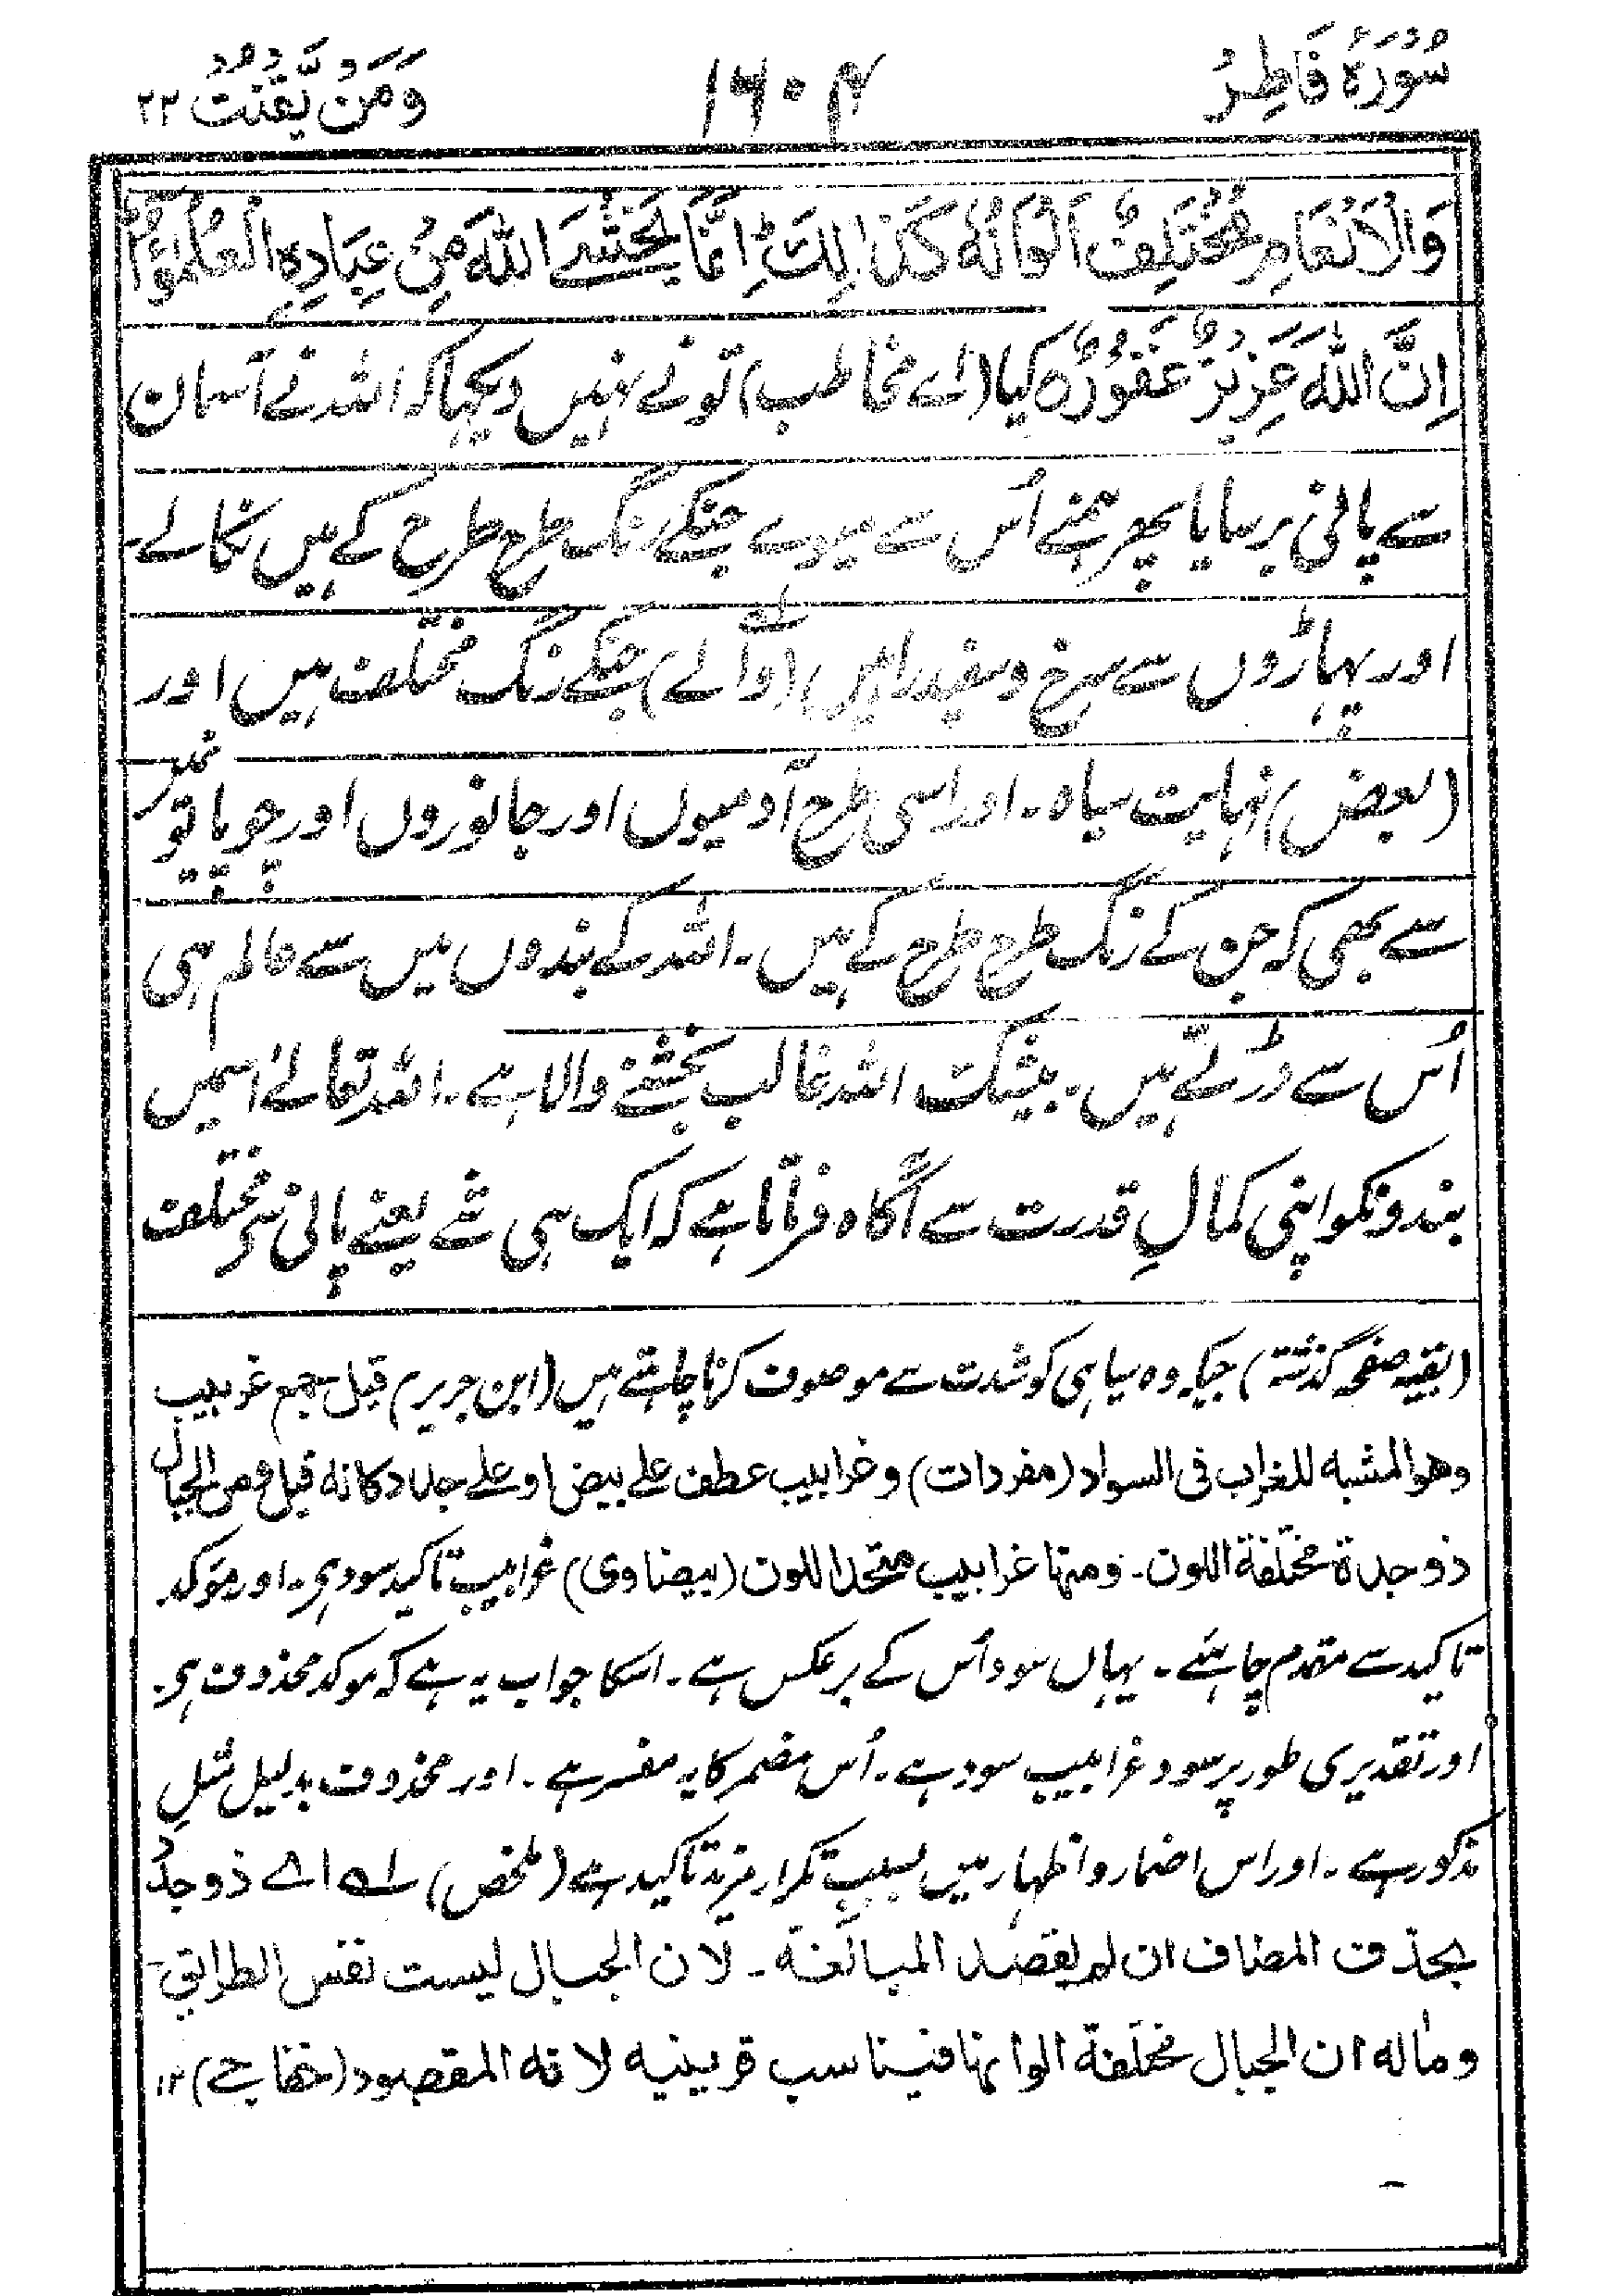 سُوْرَةُ فَاطِرُ
۱۶۰۴
وَمَنْ يَّقْنُتْ ۲۲
وَالْاَنْعَامِ مُخْتَلِفٌ اَلْوَانُهٗ كَذٰلِكَ ؕ اِنَّمَا يَخْشَے اللّٰهَ مِنْ عِبَادِهِ الْعُلَمٰٓؤُا ؕ
اِنَّ اللّٰهَ عَزِيْزٌ غَفُوْرٌ ہ کیا (اے مخاطب) تو نے نہیں دیکھا کہ اللہ نے آسمان
سے پانی برسایا پھر ہمنے اُس سے میوے جنکے رنگ طرح طرح کے ہیں نکالے۔
اور پہاڑوں سے سرخ و سفید راہیں (والے) جنکے رنگ مختلف ہیں اور
(بعض) نہایت سیاہ۔ اور اسی طرح آدمیوں اور جانوروں اور چوپایوں میں
سے بھی کہ جن کے رنگ طرح طرح کے ہیں۔ اللہ کے بندوں میں سے عالم ہی
اُس سے ڈرتے ہیں۔ بیشک اللہ غالب بخشنے والا ہے۔ اللہ تعالےٰ اسمیں
بندونکو اپنی کمالِ قدرت سے آگاہ فرماتا ہے کہ ایک ہی شے یعنے پانی سے مختلف
(بقیہ صفحہ گذشتہ) جبکہ وہ سیاہی کو شدت سے موصوف کرنا چاہتے ہیں (ابن جریر) قیل جمع غربیب
وھو المشبہ للغراب فی السواد (مفردات) وغرابیب عطف علے بیض او علے جدد کانہ قیل ومن الجبال
ذوجدۃ مختلفۃ اللون۔ ومنھا غرابیب متحد اللون (بیضاوی) غرابیب تاکید سود ہے۔ اور موکد
تاکید سے مقدم چاہئے۔ یہاں سود اُس کے برعکس ہے۔ اسکا جواب یہ ہے کہ موکد محذوف ہے۔
اور تقدیری طور پر سود غرابیب سود ہے۔ اُس مضمر کا یہ مفسر ہے۔ اور محذوف بدلیل مثلِ
مذکور ہے۔ اور اس اضمار و اظہار میں بسببِ تکرار مزید تاکید ہے (ملخص) لہ اے ذوجدُد
بحذف المضاف ان لم یقصد المبالغۃ۔ لان الجبال لیست نفس الطرائق۔
وماٰلہ ان الجبال مختلفۃ الوانھا فیناسب قرینیہ لانہ المقصود (خفاجے) ۱۲